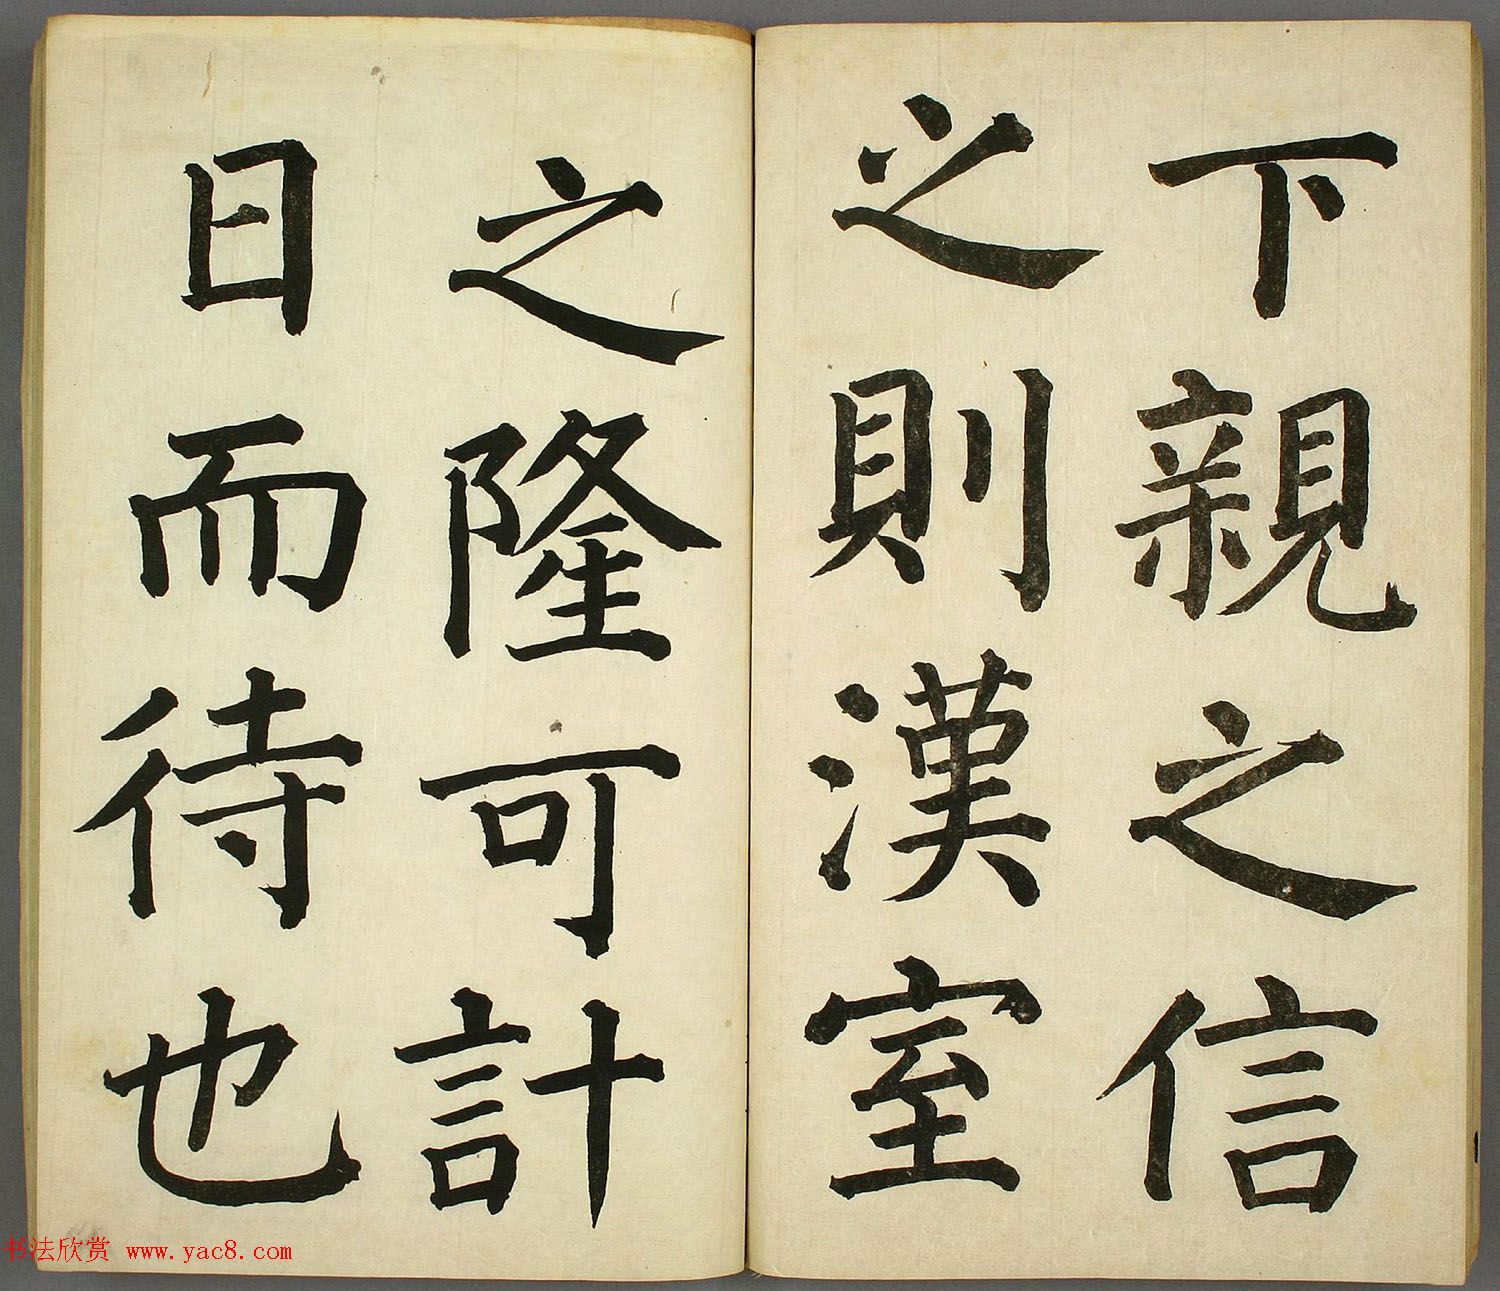 下親之信
之則漢室
之隆可計
日而待也
书法欣赏 www.yac8.com